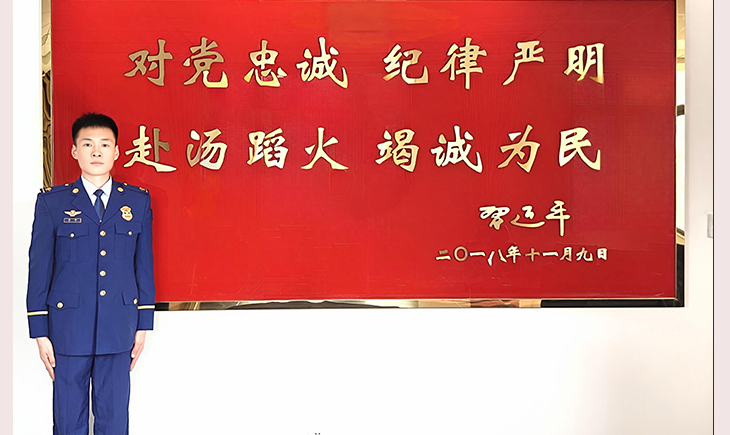 对党忠诚 纪律严明
赴汤蹈火 竭诚为民
习近平
二〇一八年十一月九日